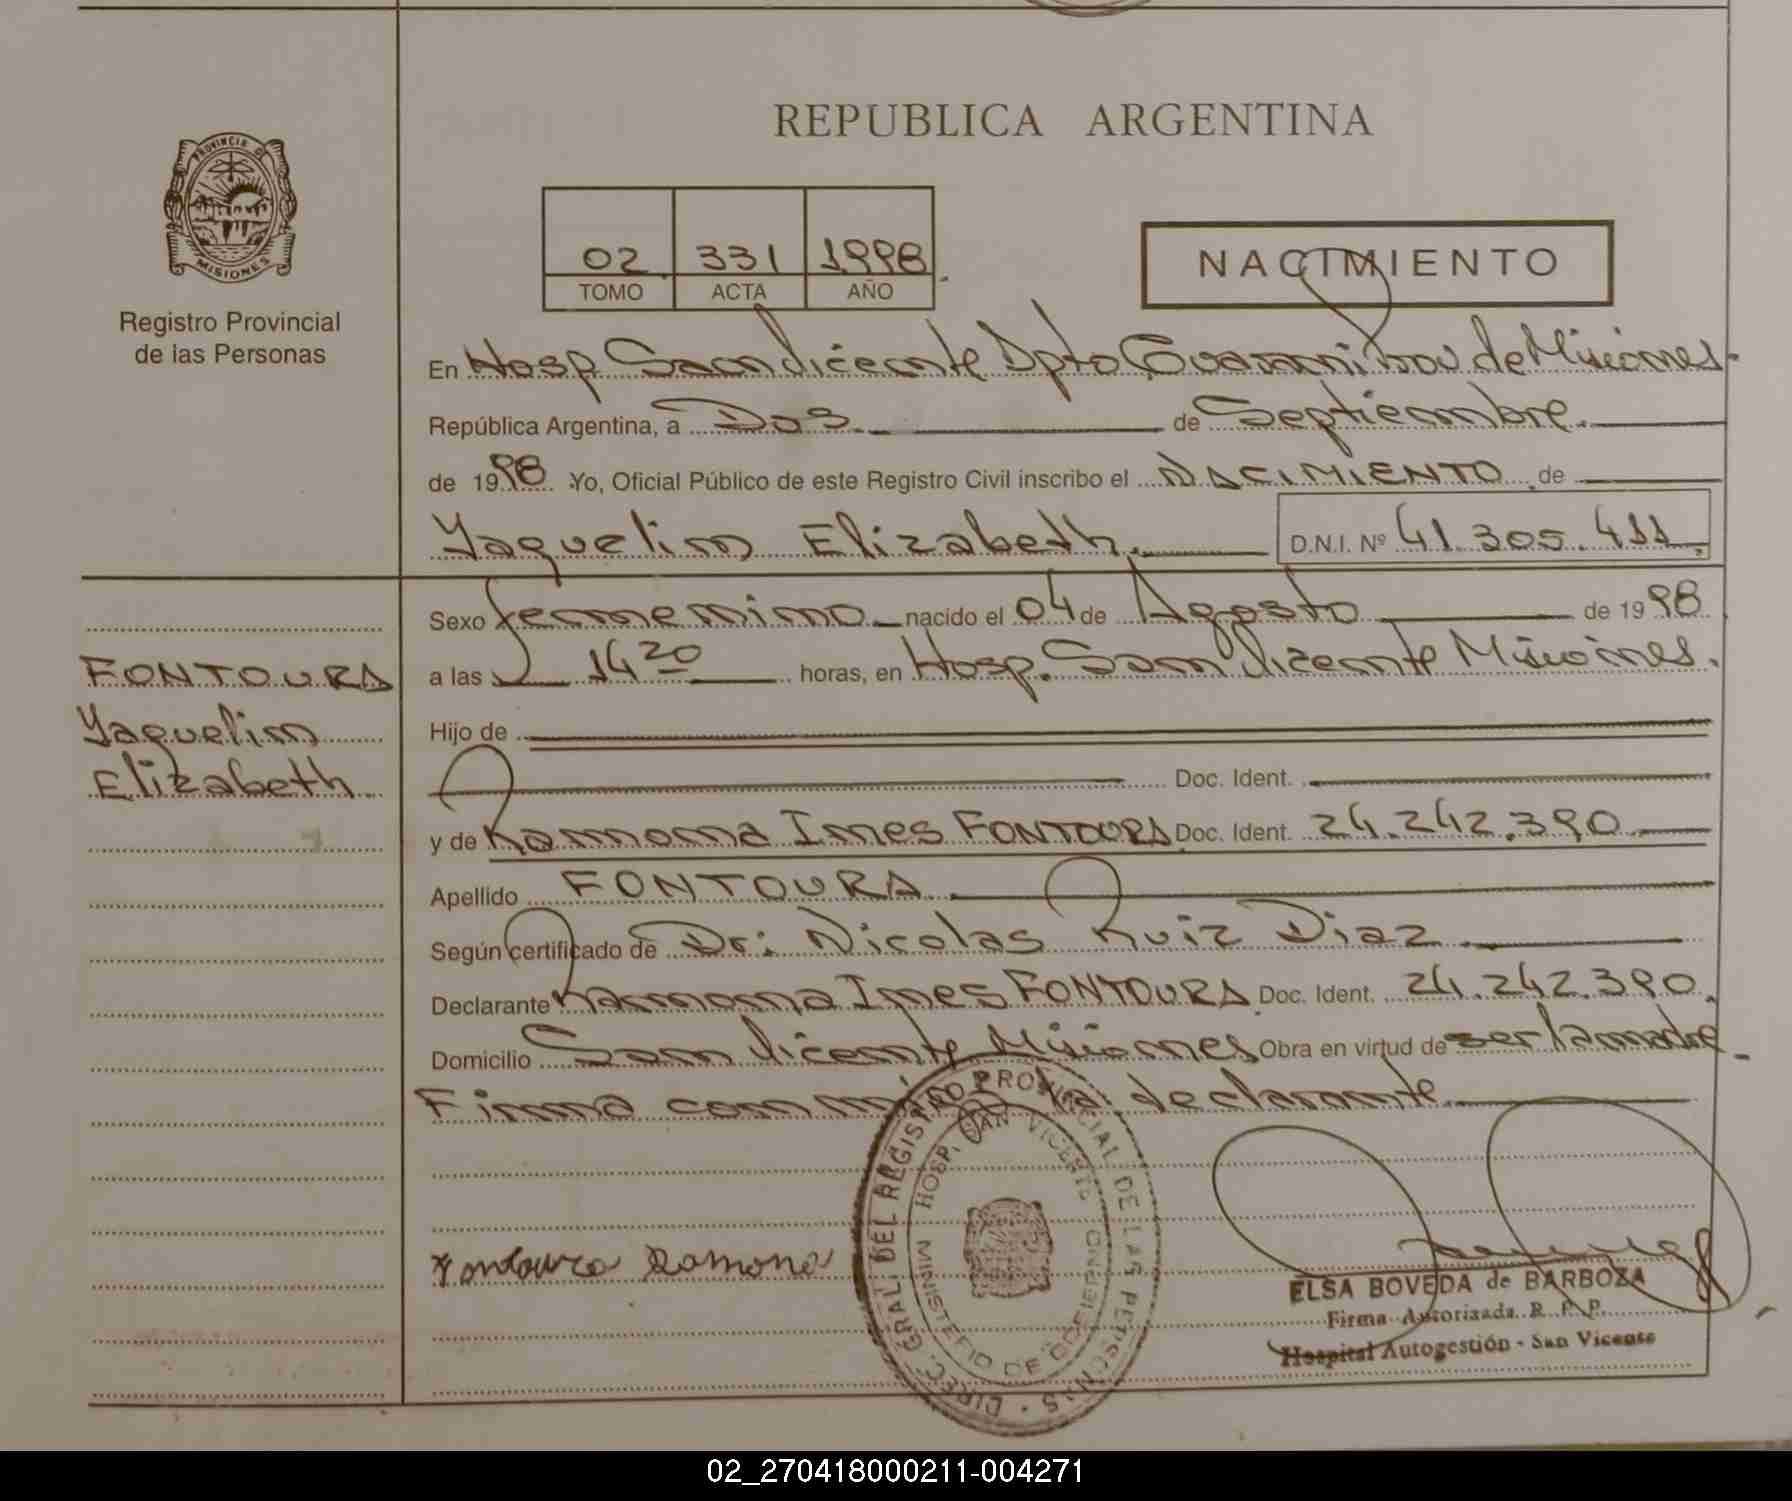 REPUBLICA ARGENTINA
PROVINCIA DE
MISIONES
Registro Provincial
de las Personas
02 331 1998
TOMO ACTA AÑO
NACIMIENTO
En Hosp San Vicente Dpto Guarani Prov de Misiones
República Argentina, a Dos de Septiembre
de 1998 Yo, Oficial Público de este Registro Civil inscribo el NACIMIENTO de
Yaquelin Elizabeth D.N.I. Nº 41.305.411
Sexo femenino nacido el 04 de Agosto de 1998
a las 14 20 horas, en Hosp. San Vicente Misiones.
FONTOURA
Yaquelin
Elizabeth
Hijo de
Doc. Ident.
y de Ramona Ines FONTOURA Doc. Ident. 24.242.390
Apellido FONTOURA
Según certificado de Dr: Nicolas Ruiz Diaz
Declarante Ramona Ines FONTOURA Doc. Ident. 24.242.390.
Domicilio San Vicente Misiones Obra en virtud de ser la madre
Firma con mi la declarante
DIREC. GRAL. DEL REGISTRO PROVINCIAL DE LAS PERSONAS
HOSP. SAN VICENTE
MINISTERIO DE GOBIERNO
Fontoura Ramona
ELSA BOVEDA de BARBOZA
Firma Autorizada R. P. P.
Hospital Autogestión - San Vicente
02_270418000211-004271